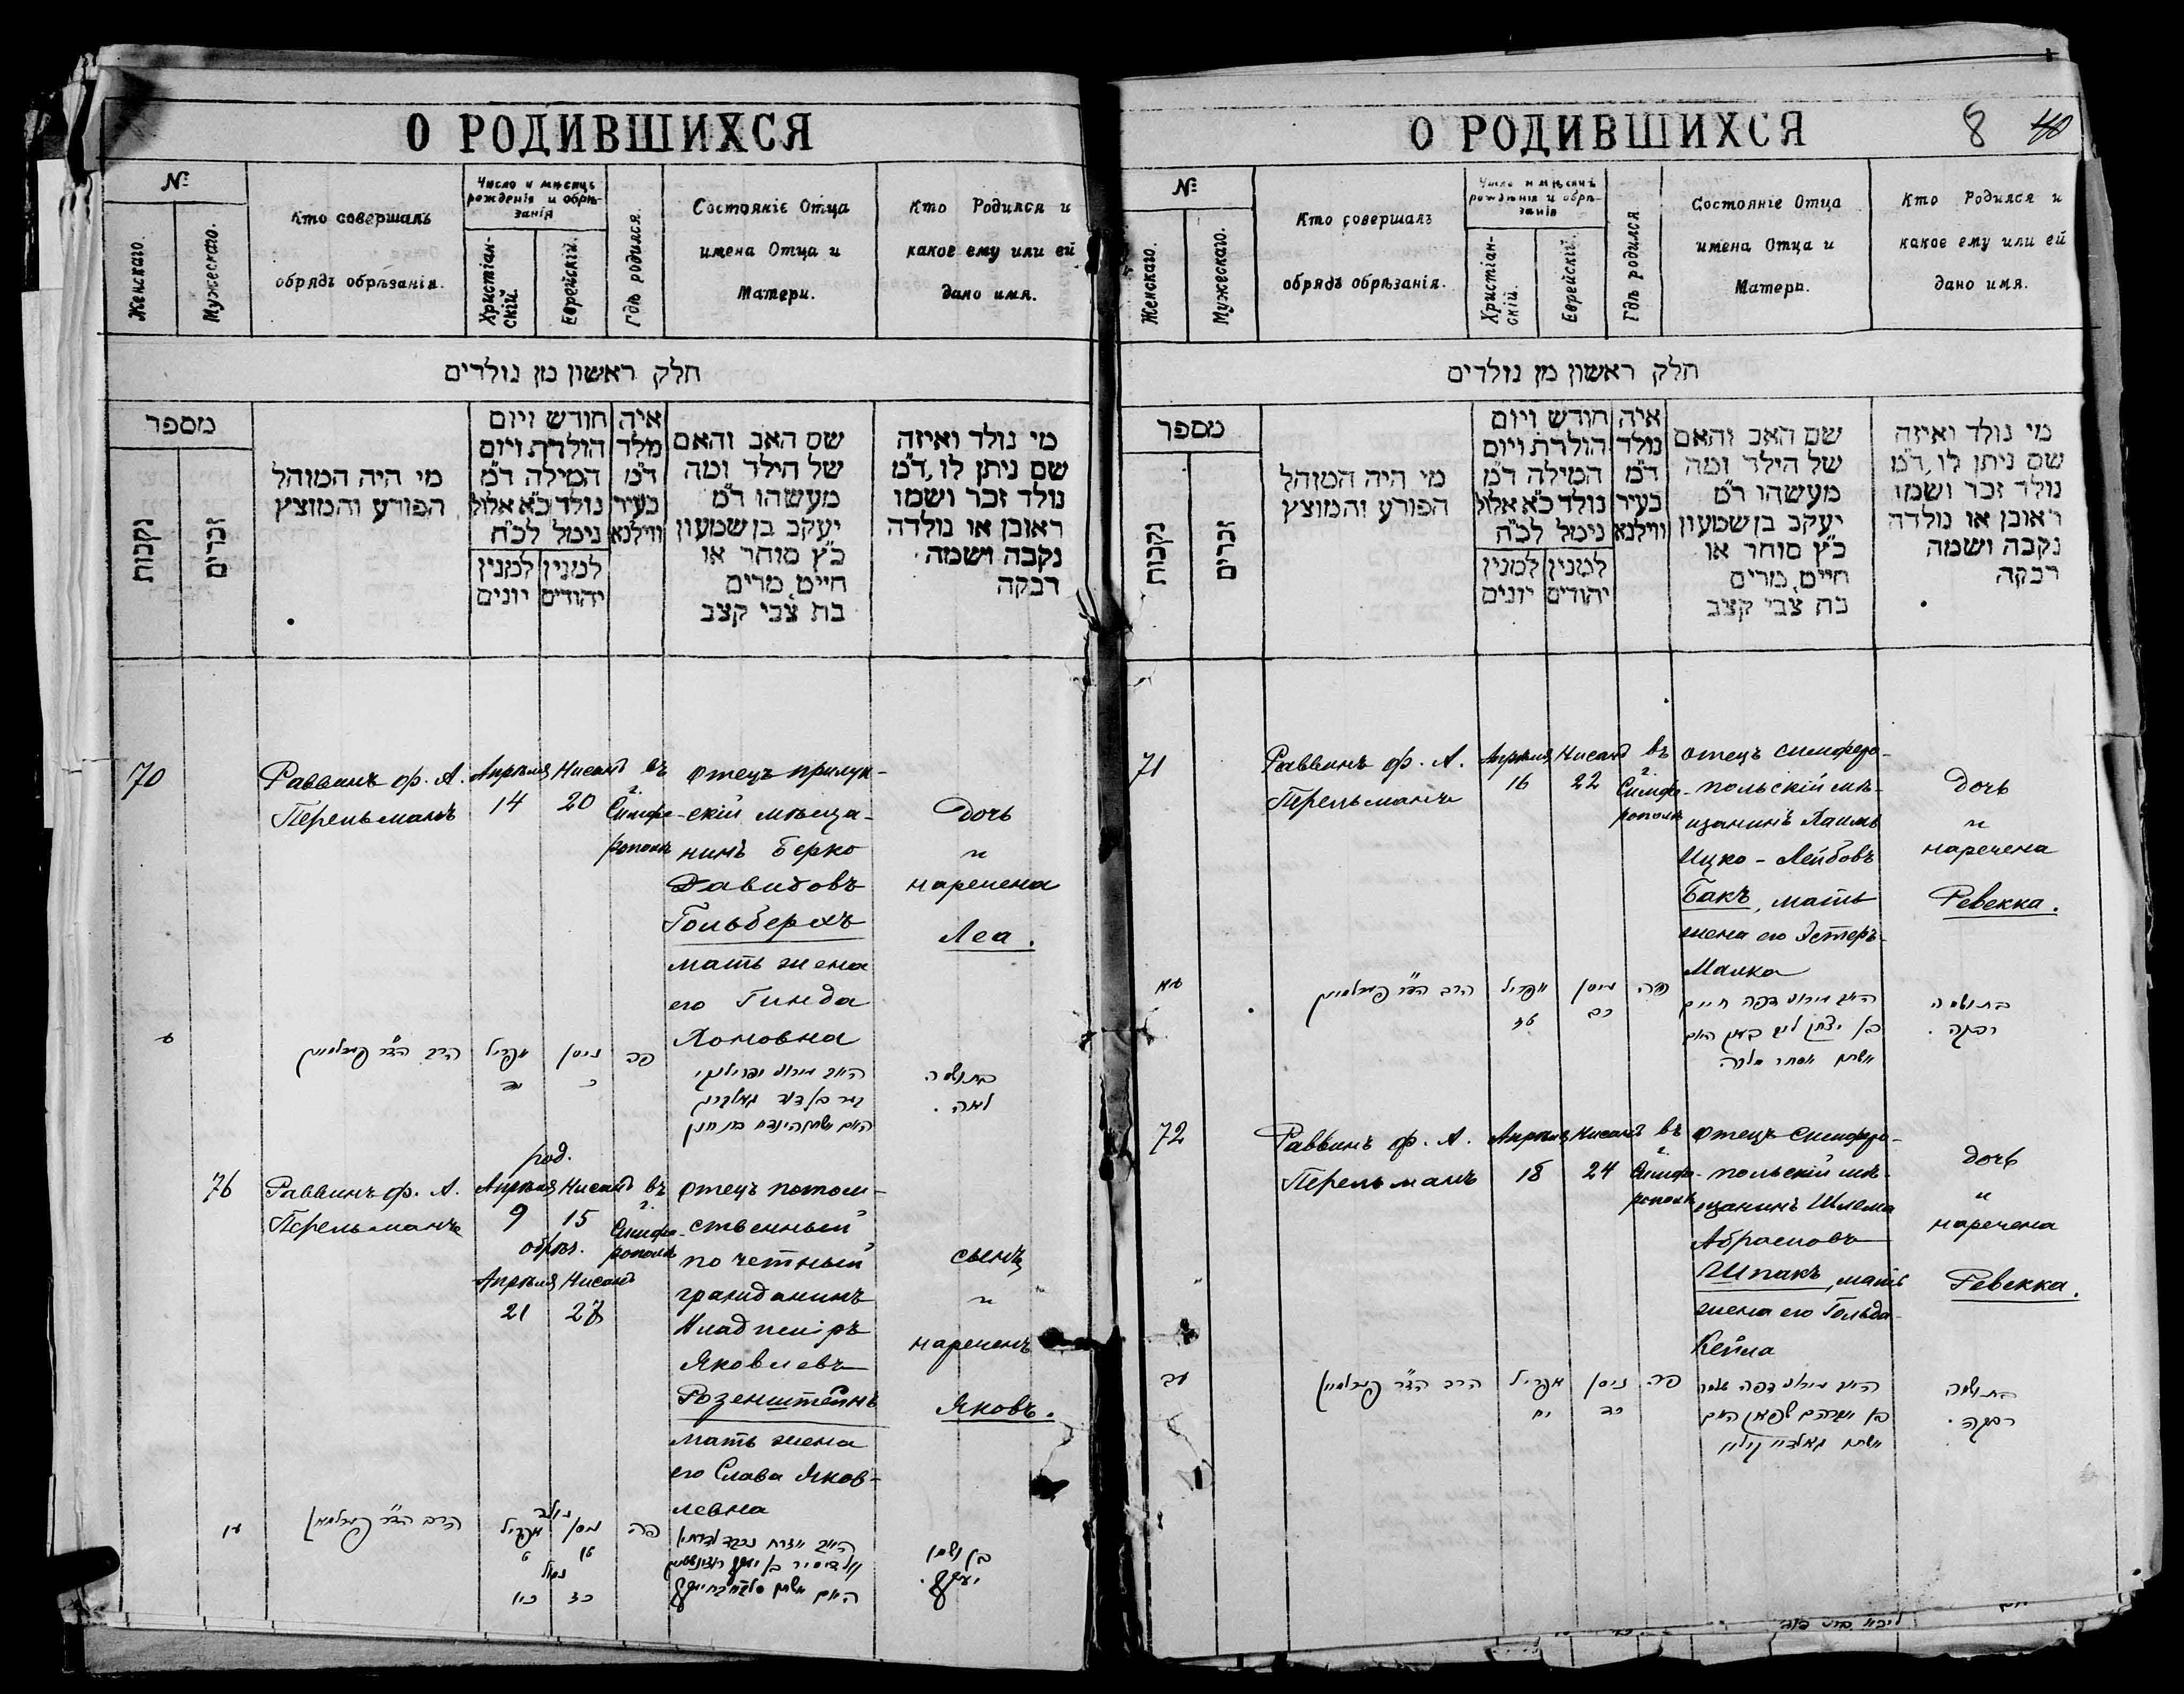 О РОДИВШИХСЯ
№
Женскаго.
Мужескаго.
Кто совершалъ
обрядъ обрѣзанія.
Число и мѣсяцъ
рожденія и обрѣ-
занія
Христіан-
скій.
Еврейскій.
Гдѣ родился.
Состоянiе Отца
имена Отца и
Матери.
Кто Родился и
какое ему или ей
дано имя.
חלק ראשון מן נולדים
מספר
נקבות
זכרים
מי היה המוהל
הפורע והמוצץ
חודש ויום
הולדת ויום
המילה ד״מ
נולד כ״א אלול
נימל לכ״ח
למנין למנין
יהודים יונים
איה
מלד
ד״מ
בעיר
ווילנא
שם האב והאם
של הילד ומה
מעשהו ד״מ
יעקב בן שמעון
כ״ץ סוחר או
חייט, מרים
בת צבי קצב
מי נולד ואיזה
שם ניתן לו, ד״מ
נולד זכר ושמו
ראובן או נולדה
נקבה ושמה
רבקה
70
Раввинъ ф. А.
Перельманъ
Апрѣля Нисанъ
14 20
въ
г.
Симфе-
рополѣ
Отецъ прилук-
скій мѣща-
нинъ Берко
Давидовъ
Гольберхъ
мать жена
его Гинда
Хоновна
Дочь
"
наречена
Леа.
הרב הד״ר פערלמאן
אפריל
ניסן
כ
פה
לאה.
76
Раввинъ ф. А.
Перельманъ
род.
Апрѣля Нисанъ
9 15
обрѣз.
Апрѣля Нисанъ
21 27
въ
г.
Симфе-
рополѣ
Отецъ потом-
ственный
почетный
гражданинъ
Владиміръ
Яковлевъ
Розенштейнъ
мать жена
его Слава Яков-
левна
сынъ
"
нареченъ
Яковъ.
הרב הד״ר פערלמאן
נולד
אפריל ניסן
ט טו
נמול
פה
בן ושמו
יעקב.
О РОДИВШИХСЯ
8 40
№
Женскаго.
Мужескаго.
Кто совершалъ
обрядъ обрѣзанія.
Число и мѣсяцъ
рожденія и обрѣ-
занія
Христіан-
скій.
Еврейскій.
Гдѣ родился
Состоянiе Отца
имена Отца и
Матери.
Кто Родился и
какое ему или ей
дано имя.
חלק ראשון מן נולדים
מספר
נקבות
זכרים
מי היה המוהל
הפורע והמוצץ
חודש ויום
הולדת ויום
המילה ד״מ
נולד כ״א אלול
נימל לכ״ח
למנין למנין
יהודים יונים
איה
נולד
ד״מ
בעיר
ווילנא
שם האב והאם
של הילד ומה
מעשהו ד״מ
יעקב בן שמעון
כ״ץ סוחר או
חייט, מרים
בת צבי קצב
מי נולד ואיזה
שם ניתן לו, ד״מ
נולד זכר ושמו
ראובן או נולדה
נקבה ושמה
רבקה
71
Раввинъ ф. А.
Перельманъ
Апрѣля Нисанъ
16 22
въ
г.
Симфе-
рополѣ
отецъ симферо-
польскій мѣ-
щанинъ Хаимъ
Ицко-Лейбовъ
Бакъ, мать
жена его Эстеръ-
Малка
Дочь
"
наречена
Ревекка.
הרב הד״ר פערלמאן
אפריל
ניסן
כב
פה
רבקה.
72
Раввинъ ф. А.
Перельманъ
Апрѣля Нисанъ
18 24
въ
г.
Симфе-
рополѣ
Отецъ Симферо-
польскій мѣ-
щанинъ Шлема
Абрамовъ
Шпакъ, мать
жена его Гольда-
Кейла
Дочь
"
наречена
Ревекка.
עב
הרב הד״ר פערלמאן
אפריל
יח
ניסן
כד
פה
רבקה.